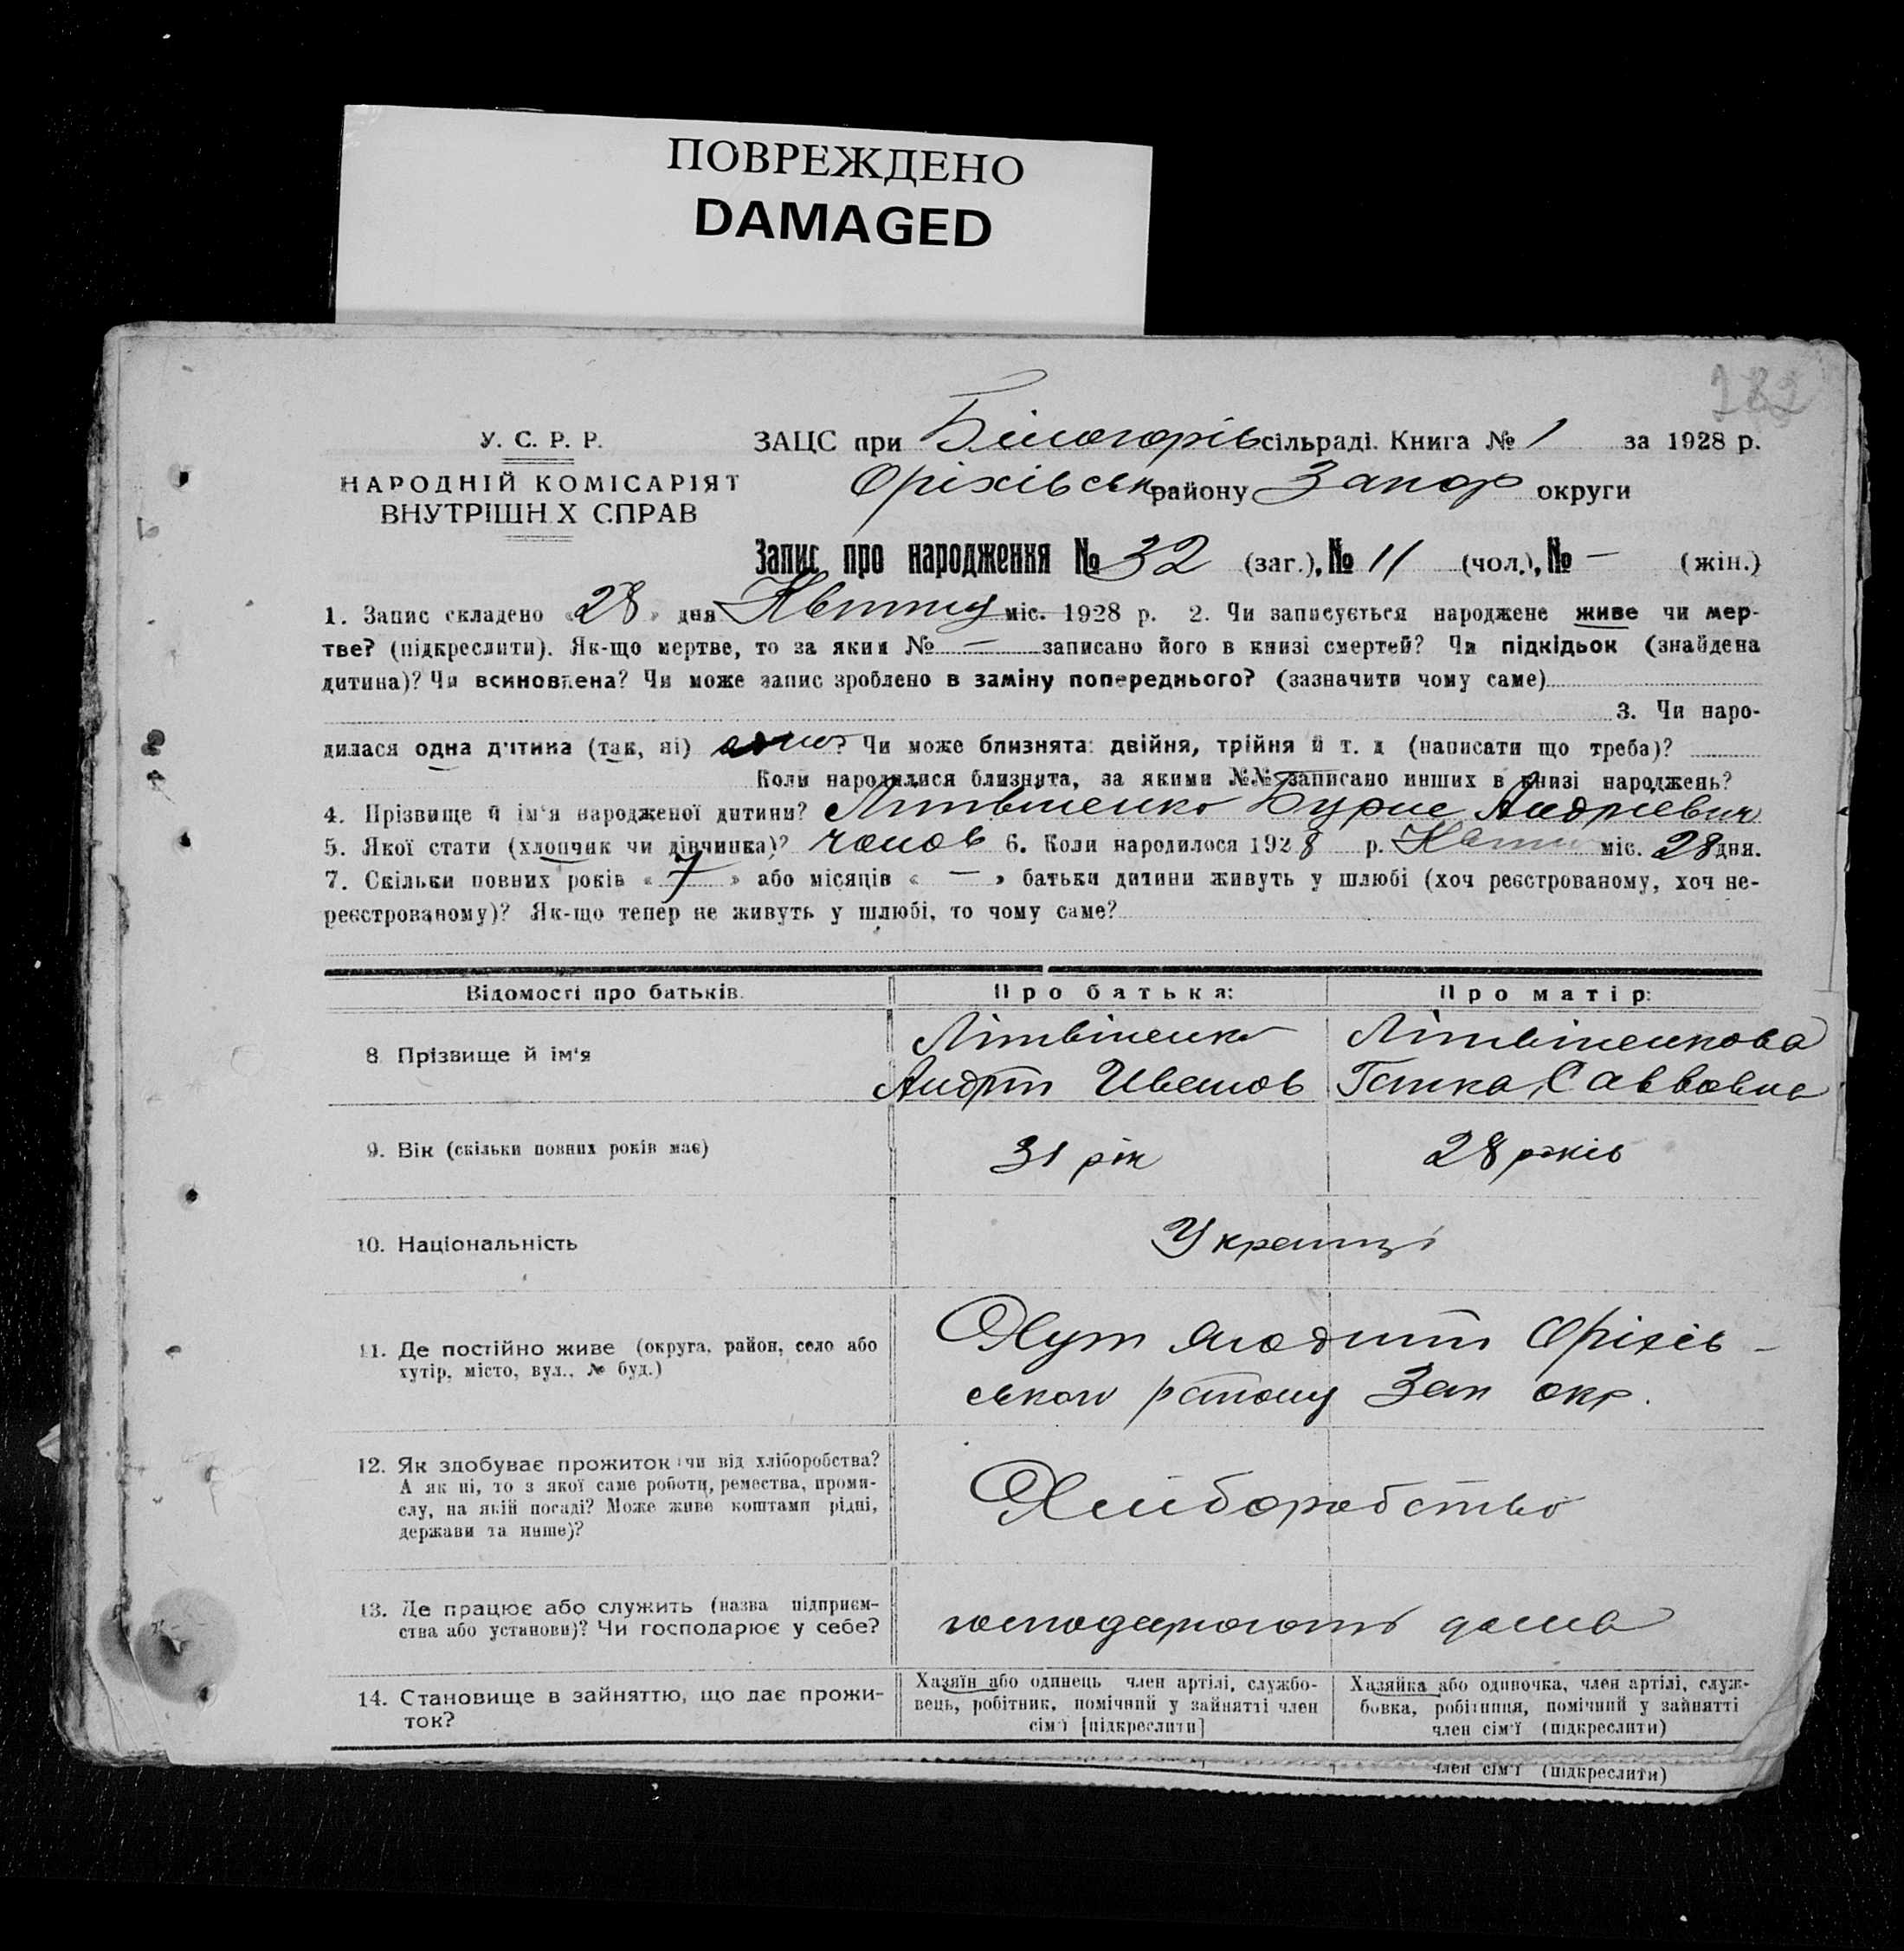 ПОВРЕЖДЕНО
DAMAGED
У. С. Р. Р.
НАРОДНІЙ КОМІСАРІЯТ
ВНУТРІШН Х СПРАВ
ЗАЦС при Білогорів сільраді. Книга № 1 за 1928 р.
Оріхівськ району Запор округи
Запис про народження № 32 (заг.), № 11 (чол.), № — (жін.)
1. Запис складено «28» дня Квітня міс. 1928 р. 2. Чи записується народжене живе чи мер-
тве? (підкреслити). Як-що мертве, то за яким № — записано його в книзі смертей? Чи підкідьок (знайдена
дитина)? Чи всиновлена? Чи може запис зроблено в заміну попереднього? (зазначити чому саме)
3. Чи наро-
дилася одна дитина (так, ні) одно? Чи може близнята: двійня, трійня й т. д (написати що треба)?
Коли народилися близнята, за якими №№ записано инших в книзі народжень?
4. Прізвище й ім'я народженої дитини? Літвіненко Бурис Андрієвич
5. Якої стати (хлопчик чи дівчинка)? чолов 6. Коли народилося 1928 р. Квітн міс. 28 дня.
7. Скільки повних років «7» або місяців « — » батьки дитини живуть у шлюбі (хоч реєстрованому, хоч не-
реєстрованому)? Як-що тепер не живуть у шлюбі, то чому саме?
Відомості про батьків. Про батька: Про матір:
8 Прізвище й ім'я
Літвіненко Літвіненкова
Андрій Иванов Ганка Саввовна
9. Вік (скільки повних років має) 31 рік 28 років
10. Національність Українці
11. Де постійно живе (округа, район, село або
хутір, місто, вул., № буд.)
Хут Оріхів-
ського району Зап окр.
12. Як здобуває прожиток: чи від хліборобства?
А як ні, то з якої саме роботи, ремества, проми-
слу, на якій посаді? Може живе коштами рідні,
держави та инше)?
Хліборобство
13. Де працює або служить (назва підприєм-
ства або установи)? Чи господарює у себе?
господарюють дома
14. Становище в зайняттю, що дає прожи-
ток?
Хазяїн або одинець член артілі, службо-
вець, робітник, помічний у зайнятті член
сім'ї [підкреслити]
Хазяйка або одиночка, член артілі, служ-
бовка, робітниця, помічний у зайнятті
член сім'ї (підкреслити)
член сім'ї (підкреслити)